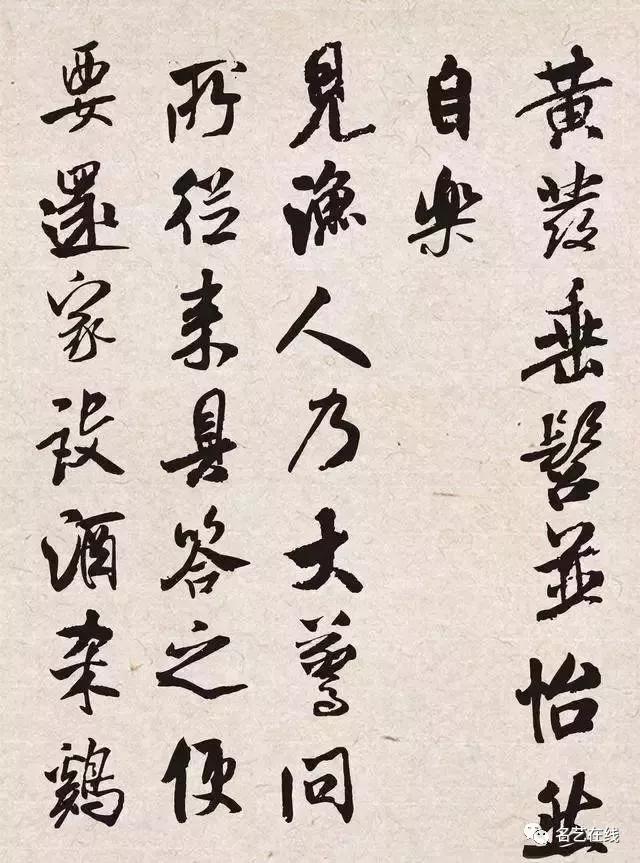 黄發垂髫並怡然
自樂
見漁人乃大驚問
所從来具答之便
要還家設酒杀鷄
名艺在线